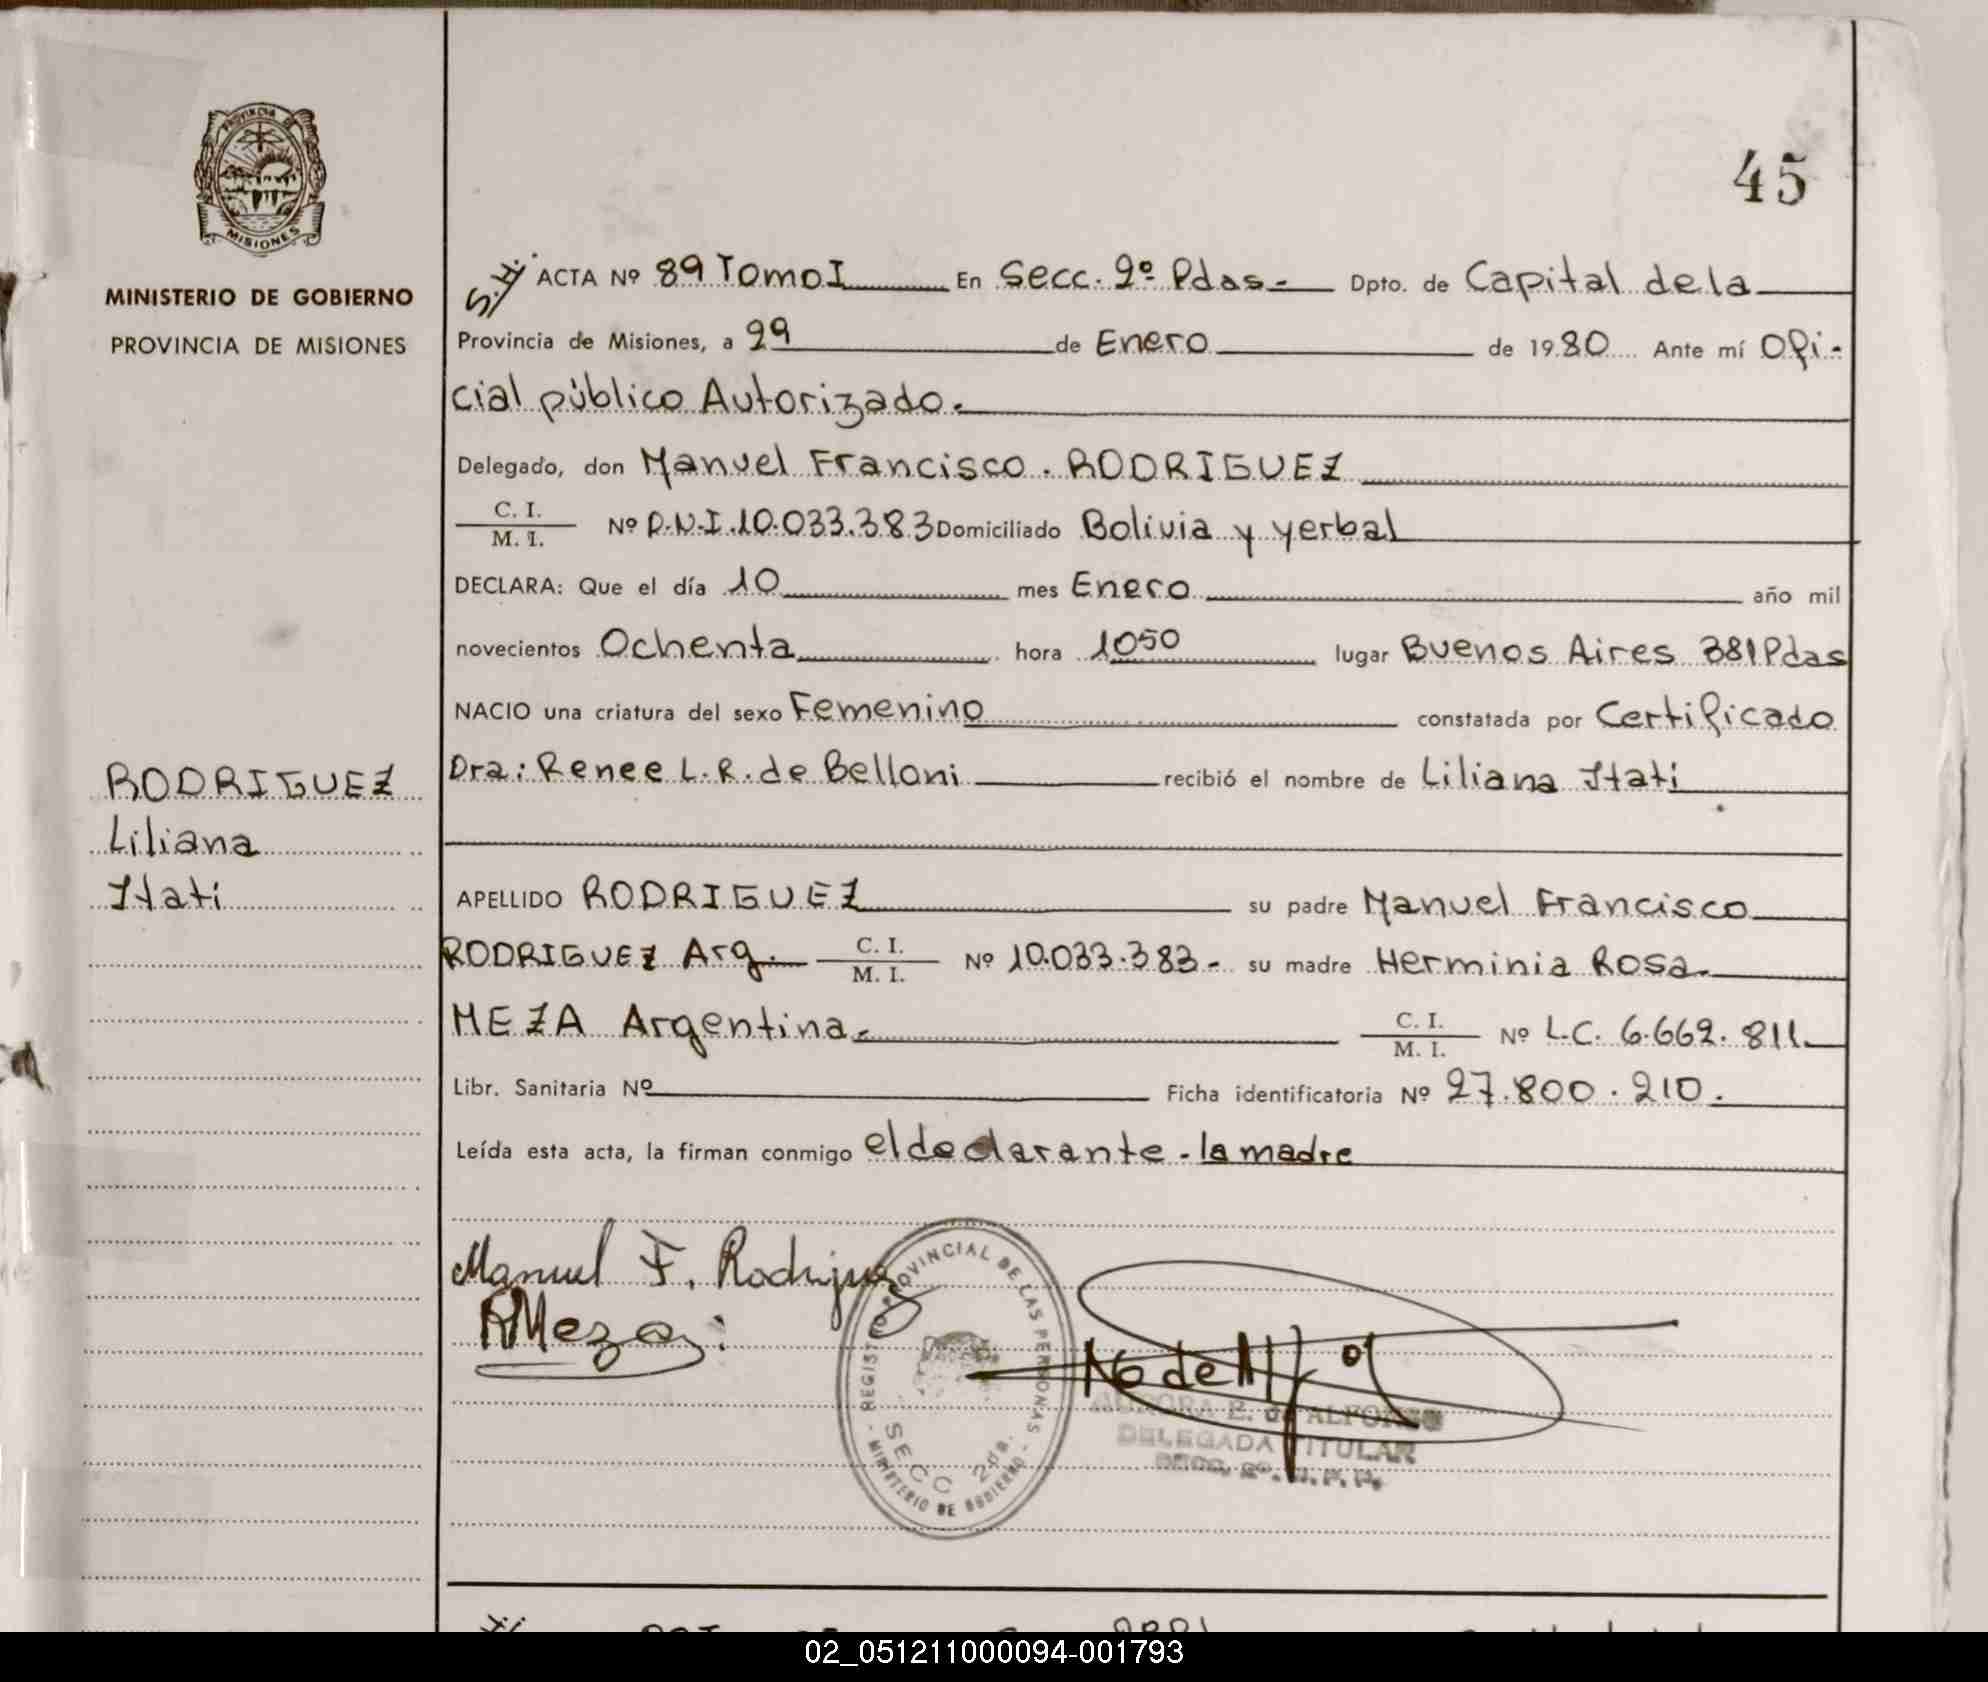 45
PROVINCIA DE
MISIONES
MINISTERIO DE GOBIERNO
PROVINCIA DE MISIONES
S.H. ACTA Nº 89 Tomo I En Secc. 2º Pdas.- Dpto. de Capital de la
Provincia de Misiones, a 29 de Enero de 1980 Ante mí Ofi-
cial público Autorizado.
Delegado, don Manuel Francisco. RODRIGUEZ
C. I.
M. I. Nº D.N.I. 10.033.383 Domiciliado Bolivia y yerbal
DECLARA: Que el día 10 mes Enero año mil
novecientos Ochenta hora 1050 lugar Buenos Aires 381 Pdas
NACIO una criatura del sexo Femenino constatada por Certificado
Dra: Renee L.R. de Belloni recibió el nombre de Liliana Itati
RODRIGUEZ
Liliana
Itati
APELLIDO RODRIGUEZ su padre Manuel Francisco
RODRIGUEZ Arg. C. I.
M. I. Nº 10.033.383.- su madre Herminia Rosa.
MEZA Argentina.- C. I.
M. I. Nº L.C. 6.662.811.
Libr. Sanitaria Nº Ficha identificatoria Nº 27.800.210.
Leída esta acta, la firman conmigo el declarante - la madre
Manuel F. Rodriguez
RMeza
REGISTRO PROVINCIAL DE LAS PERSONAS
SECC 2da.
MINISTERIO DE GOBIERNO
AURORA E. de ALFONSO
DELEGADA TITULAR
SECC. 2º.
02_051211000094-001793